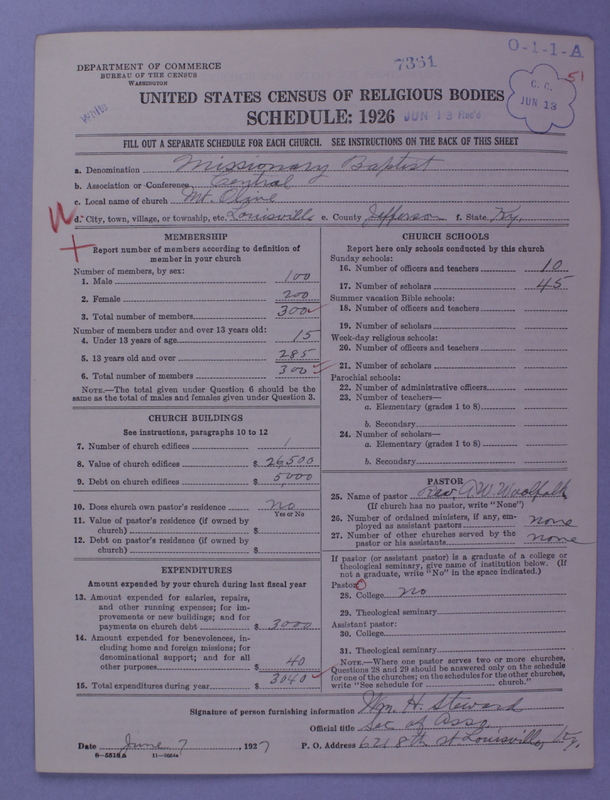 O-1-1-A
7361
51
DEPARTMENT OF COMMERCE
BUREAU OF THE CENSUS
WASHINGTON
C. C.
JUN 13
White
UNITED STATES CENSUS OF RELIGIOUS BODIES
SCHEDULE: 1926 JUN 13 Rec'd
FILL OUT A SEPARATE SCHEDULE FOR EACH CHURCH. SEE INSTRUCTIONS ON THE BACK OF THIS SHEET
a. Denomination Missionary Baptist
b. Association or Conference Central
c. Local name of church Mt. Olive
d. City, town, village, or township, etc. Louisville e. County Jefferson f. State Ky.
MEMBERSHIP
Report number of members according to definition of
member in your church
Number of members, by sex:
1. Male 100
2. Female 200
3. Total number of members 300
Number of members under and over 13 years old:
4. Under 13 years of age 15
5. 13 years old and over 285
6. Total number of members 300
NOTE.—The total given under Question 6 should be the
same as the total of males and females given under Question 3.
CHURCH BUILDINGS
See instructions, paragraphs 10 to 12
7. Number of church edifices 1
8. Value of church edifices $ 26500
9. Debt on church edifices $ 5,000
10. Does church own pastor's residence no
Yes or No
11. Value of pastor's residence (if owned by
church) $
12. Debt on pastor's residence (if owned by
church) $
EXPENDITURES
Amount expended by your church during last fiscal year
13. Amount expended for salaries, repairs,
and other running expenses; for im-
provements or new buildings; and for
payments on church debt $ 3000
14. Amount expended for benevolences, in-
cluding home and foreign missions; for
denominational support; and for all
other purposes $ 40
15. Total expenditures during year $ 3040
CHURCH SCHOOLS
Report here only schools conducted by this church
Sunday schools:
16. Number of officers and teachers 10
17. Number of scholars 45
Summer vacation Bible schools:
18. Number of officers and teachers
19. Number of scholars
Week-day religious schools:
20. Number of officers and teachers
21. Number of scholars
Parochial schools:
22. Number of administrative officers
23. Number of teachers—
a. Elementary (grades 1 to 8)
b. Secondary
24. Number of scholars—
a. Elementary (grades 1 to 8)
b. Secondary
PASTOR
25. Name of pastor Rev. G. W. Woolfalk
(If church has no pastor, write "None")
26. Number of ordained ministers, if any, em-
ployed as assistant pastors none
27. Number of other churches served by the
pastor or his assistants none
If pastor (or assistant pastor) is a graduate of a college or
theological seminary, give name of institution below. (If
not a graduate, write "No" in the space indicated.)
Pastor:
28. College no
29. Theological seminary
Assistant pastor:
30. College
31. Theological seminary
NOTE.—Where one pastor serves two or more churches,
Questions 28 and 29 should be answered only on the schedule
for one of the churches; on the schedules for the other churches,
write "See schedule for church."
Signature of person furnishing information Wm. H. Steward
Official title Sec of Assn
Date June 7, 1927 P. O. Address 621 8th st Louisville, Ky.